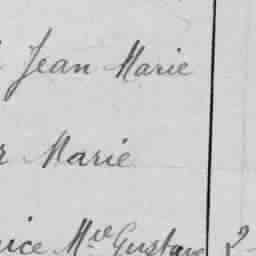 Jean Marie
r Marie
ice Mve Gustave 2